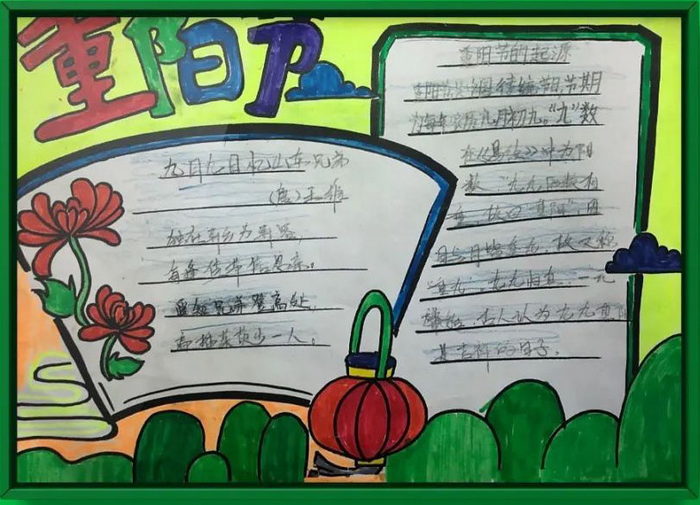 重阳节
九月九日忆山东兄弟
(唐)王维
独在异乡为异客,
每逢佳节倍思亲。
遥知兄弟登高处,
遍插茱萸少一人。
重阳节的起源
重阳节是中国传统节日,节期
为每年农历九月初九。"九"数
在《易经》中为阳
数,"九九"两数相
重,故曰"重阳",因
日与月皆逢九,故又称
"重九"。九九归真,一元
肇始,古人认为九九重阳
是吉祥的日子。